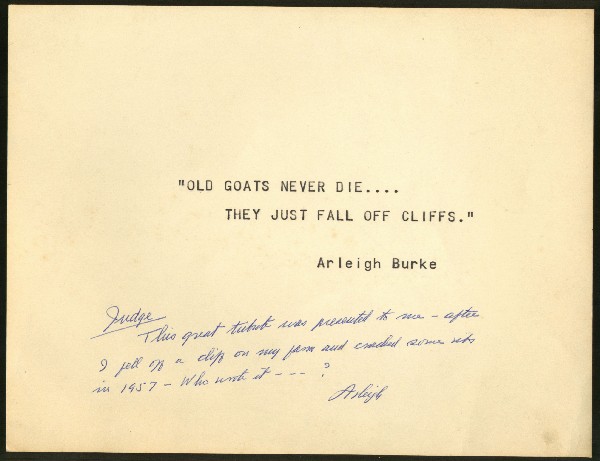 "OLD GOATS NEVER DIE....
THEY JUST FALL OFF CLIFFS."
Arleigh Burke
Judge
This great tribute was presented to me - after
I fell off a cliff on my farm and cracked some ribs
in 1957 - Who wrote it - - - ?
Arleigh